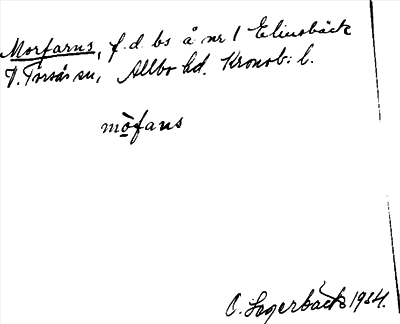 Morfarns, f.d. bs å nr 1 Elinsbäck
V. Torsås sn, Allbo hd. Kronob: l.
mo̲fans
O. Lagerbäck 1934.